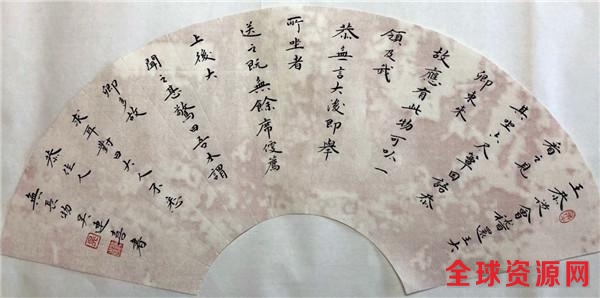 王恭從會稽還王大
看之見
其坐六尺簟因語恭
卿東來
故應有此物可以一
領及我
恭無言大後即舉
所坐者
送之既無餘席便薦
上後大
聞之甚驚曰吾本謂
卿多故
求耳對曰丈人不悉
恭作人
無長物 書
全球资源网